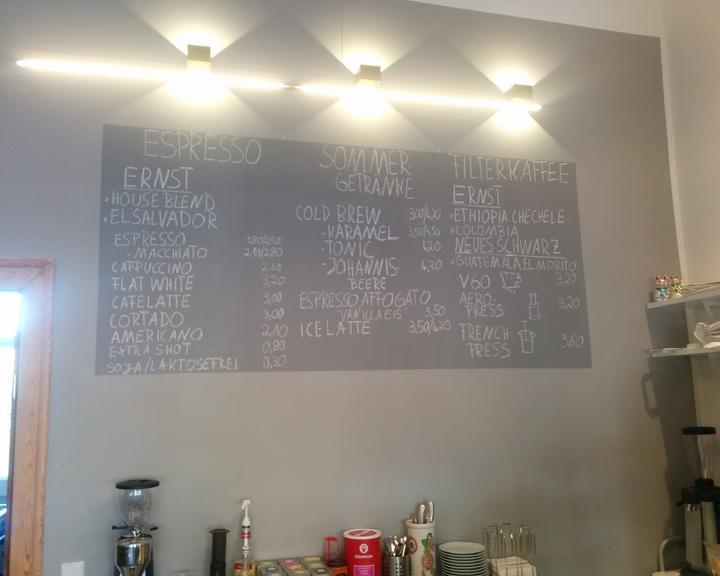 ESPRESSO
ERNST
• HOUSE BLEND
• EL SALVADOR
ESPRESSO
- MACCHIATO 2,10/2,80
CAPPUCCINO 2,60
FLAT WHITE 3,20
CAFE LATTE 3,00
CORTADO 3,00
AMERICANO 2,10
EXTRA SHOT 0,80
SOJA/LAKTOSEFREI 0,30
SOMMER
GETRÄNKE
COLD BREW 3,00/4,20
- KARAMEL 3,50/4,50
- TONIC 4,20
- JOHANNIS- 4,20
BEERE
ESPRESSO AFFOGATO
"VANILLAEIS" 3,50
ICE LATTE 3,50/4,20
FILTERKAFFEE
ERNST
• ETHIOPIA CHECHELE
• COLOMBIA
NEUES SCHWARZ
• GUATEMALA EL MORITO
V60 3,20
AERO-
PRESS 3,20
FRENCH-
PRESS 3,60